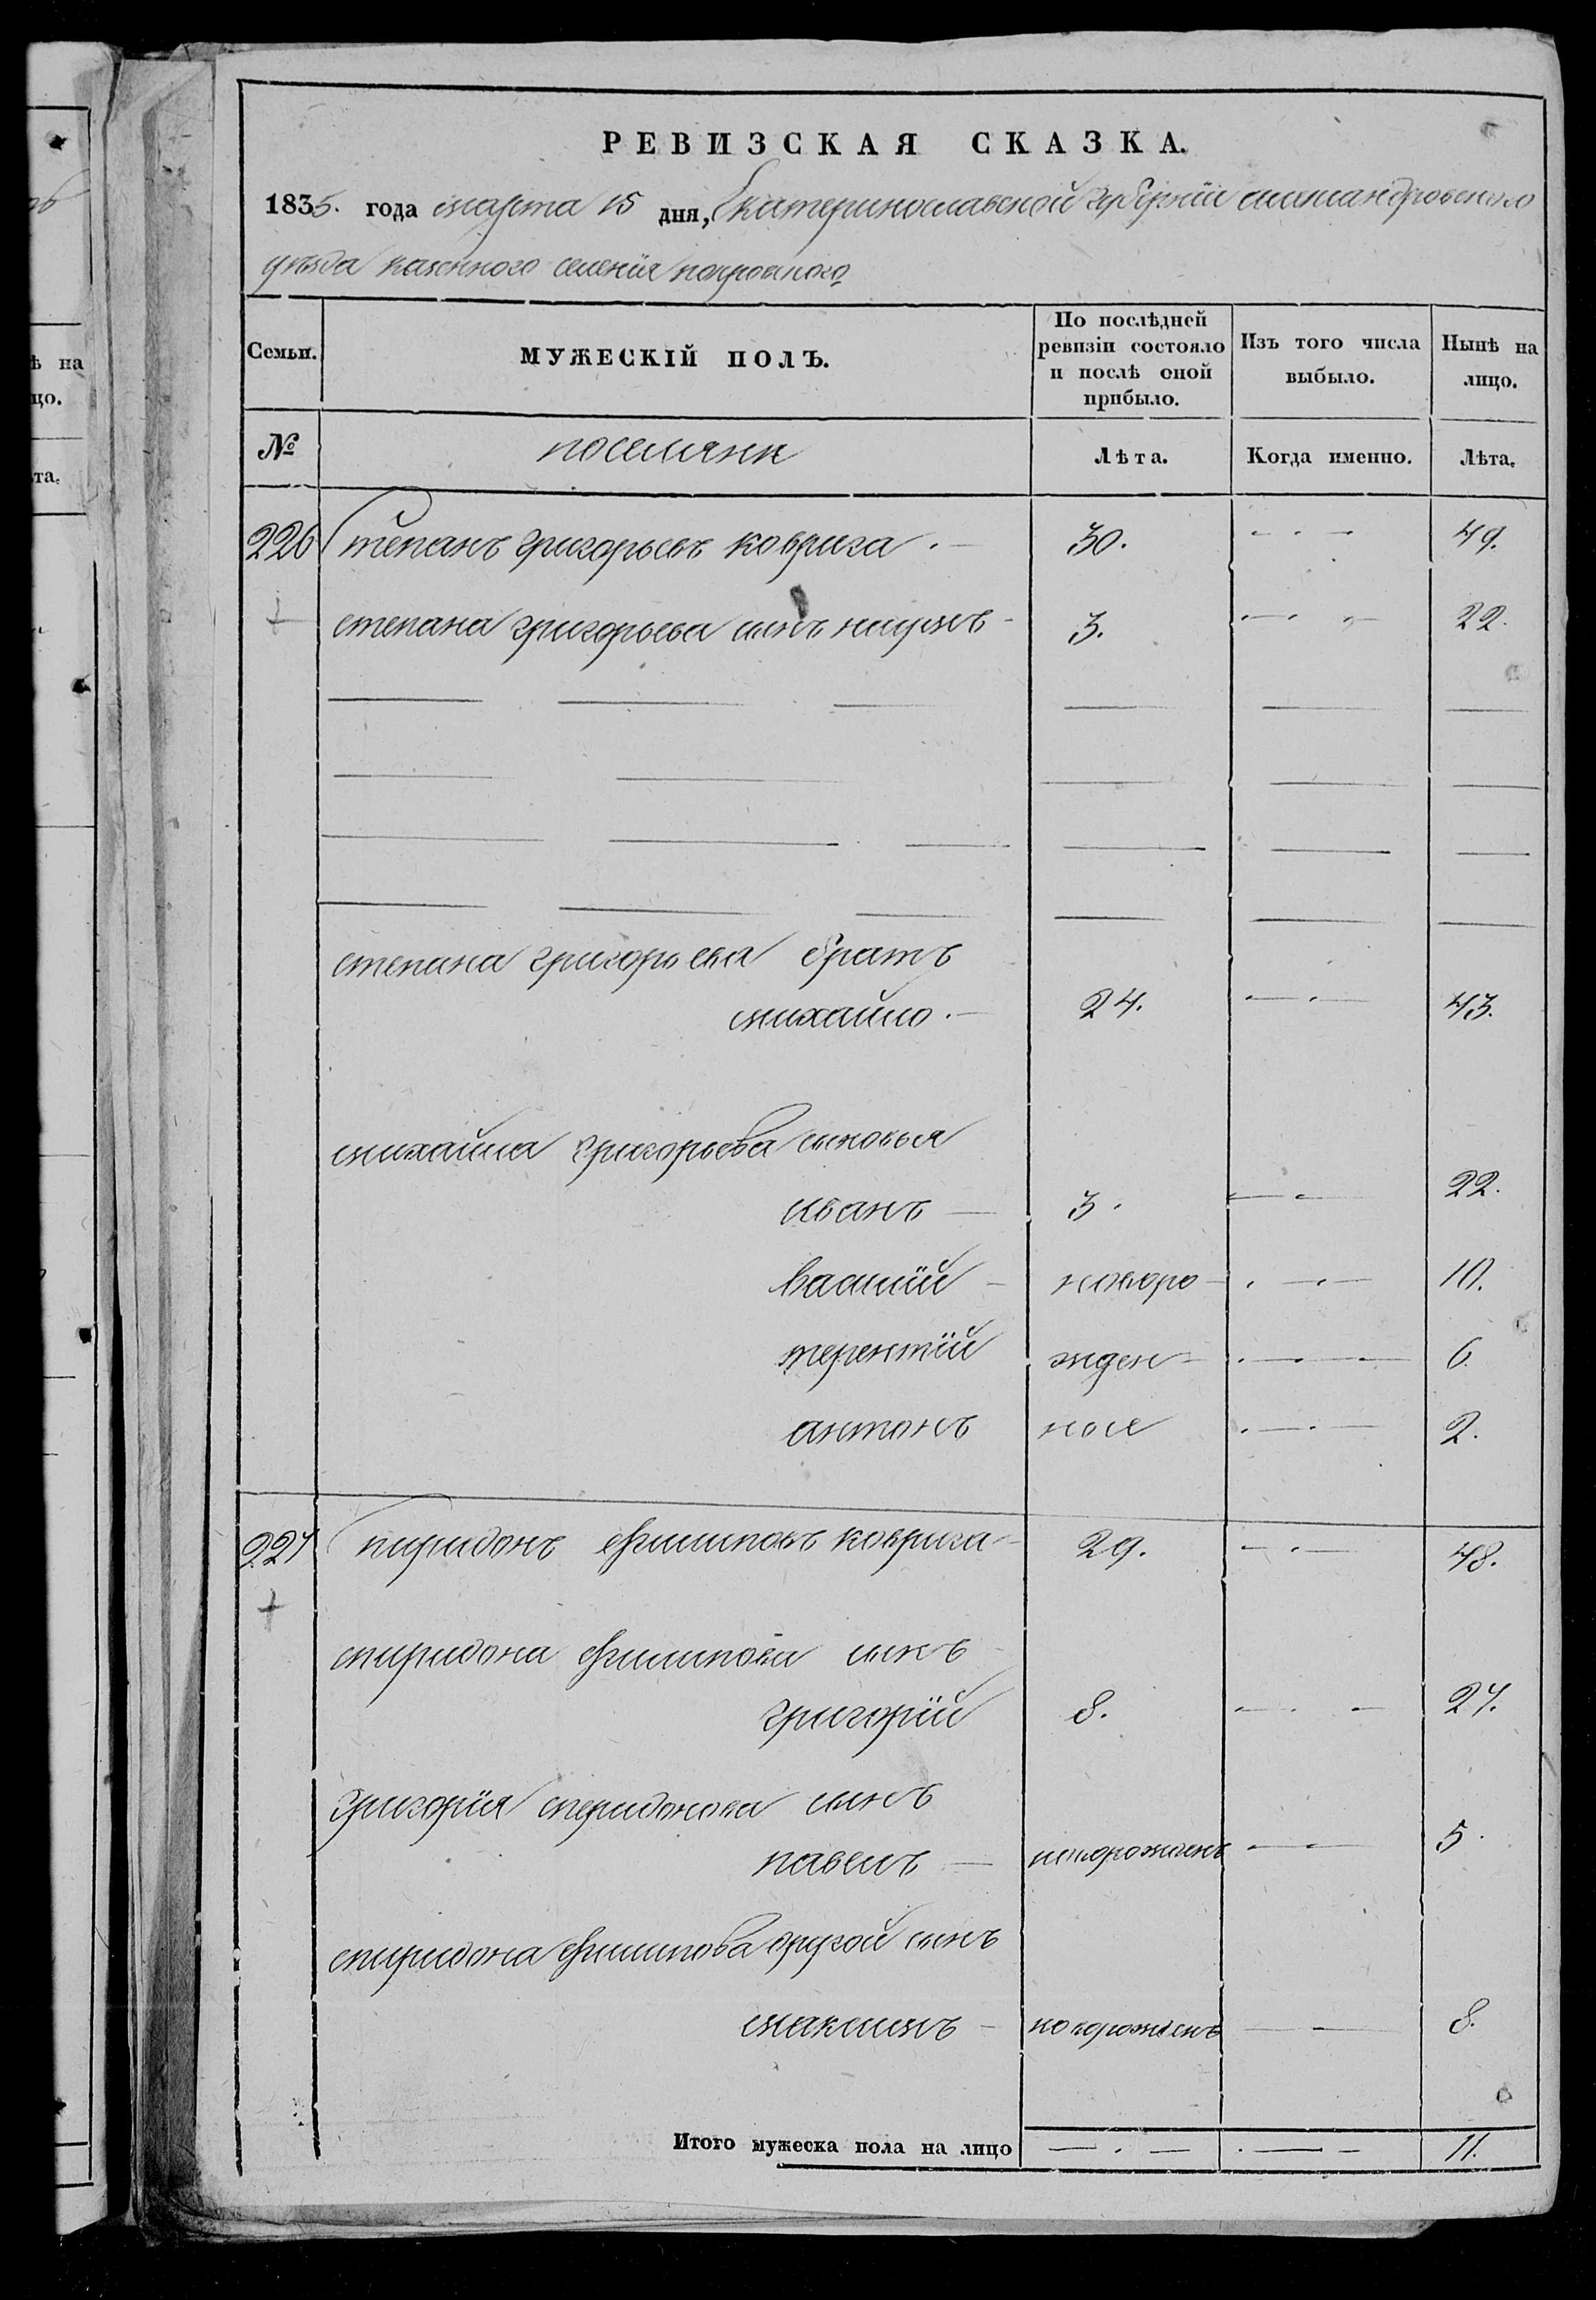 РЕВИЗСКАЯ СКАЗКА.
1835. года марта 15 дня, Екатеринославской губернїи александровского
уезда казенного селенїя покровского
Семьи. МУЖЕСКІЙ ПОЛЪ. По послѣдней ревизіи состояло и послѣ оной прибыло. Изъ того числа выбыло. Нынѣ на лицо.
№ поселяне Лѣта. Когда именно. Лѣта.
226 Степанъ григорьевъ коврига. 30. 49.
степана григорьева сынъ наумъ 3. 22.
степана григорьева братъ
михайло. 24. 43.
михайла григорьева сыновья
иванъ 3. 22.
василїй новоро 10.
терентїй жден 6.
антонъ ное 2.
227 Спиридонъ филиповъ коврига 29. 48.
спиридона филипова сынъ
григорїй 8. 27.
григорїя спиридонова сынъ
павелъ новорожденъ 5.
спиридона филипова другой сынъ
максимъ новорожденъ 8.
Итого мужеска пола на лицо 11.
ѣ на
цо.
та.